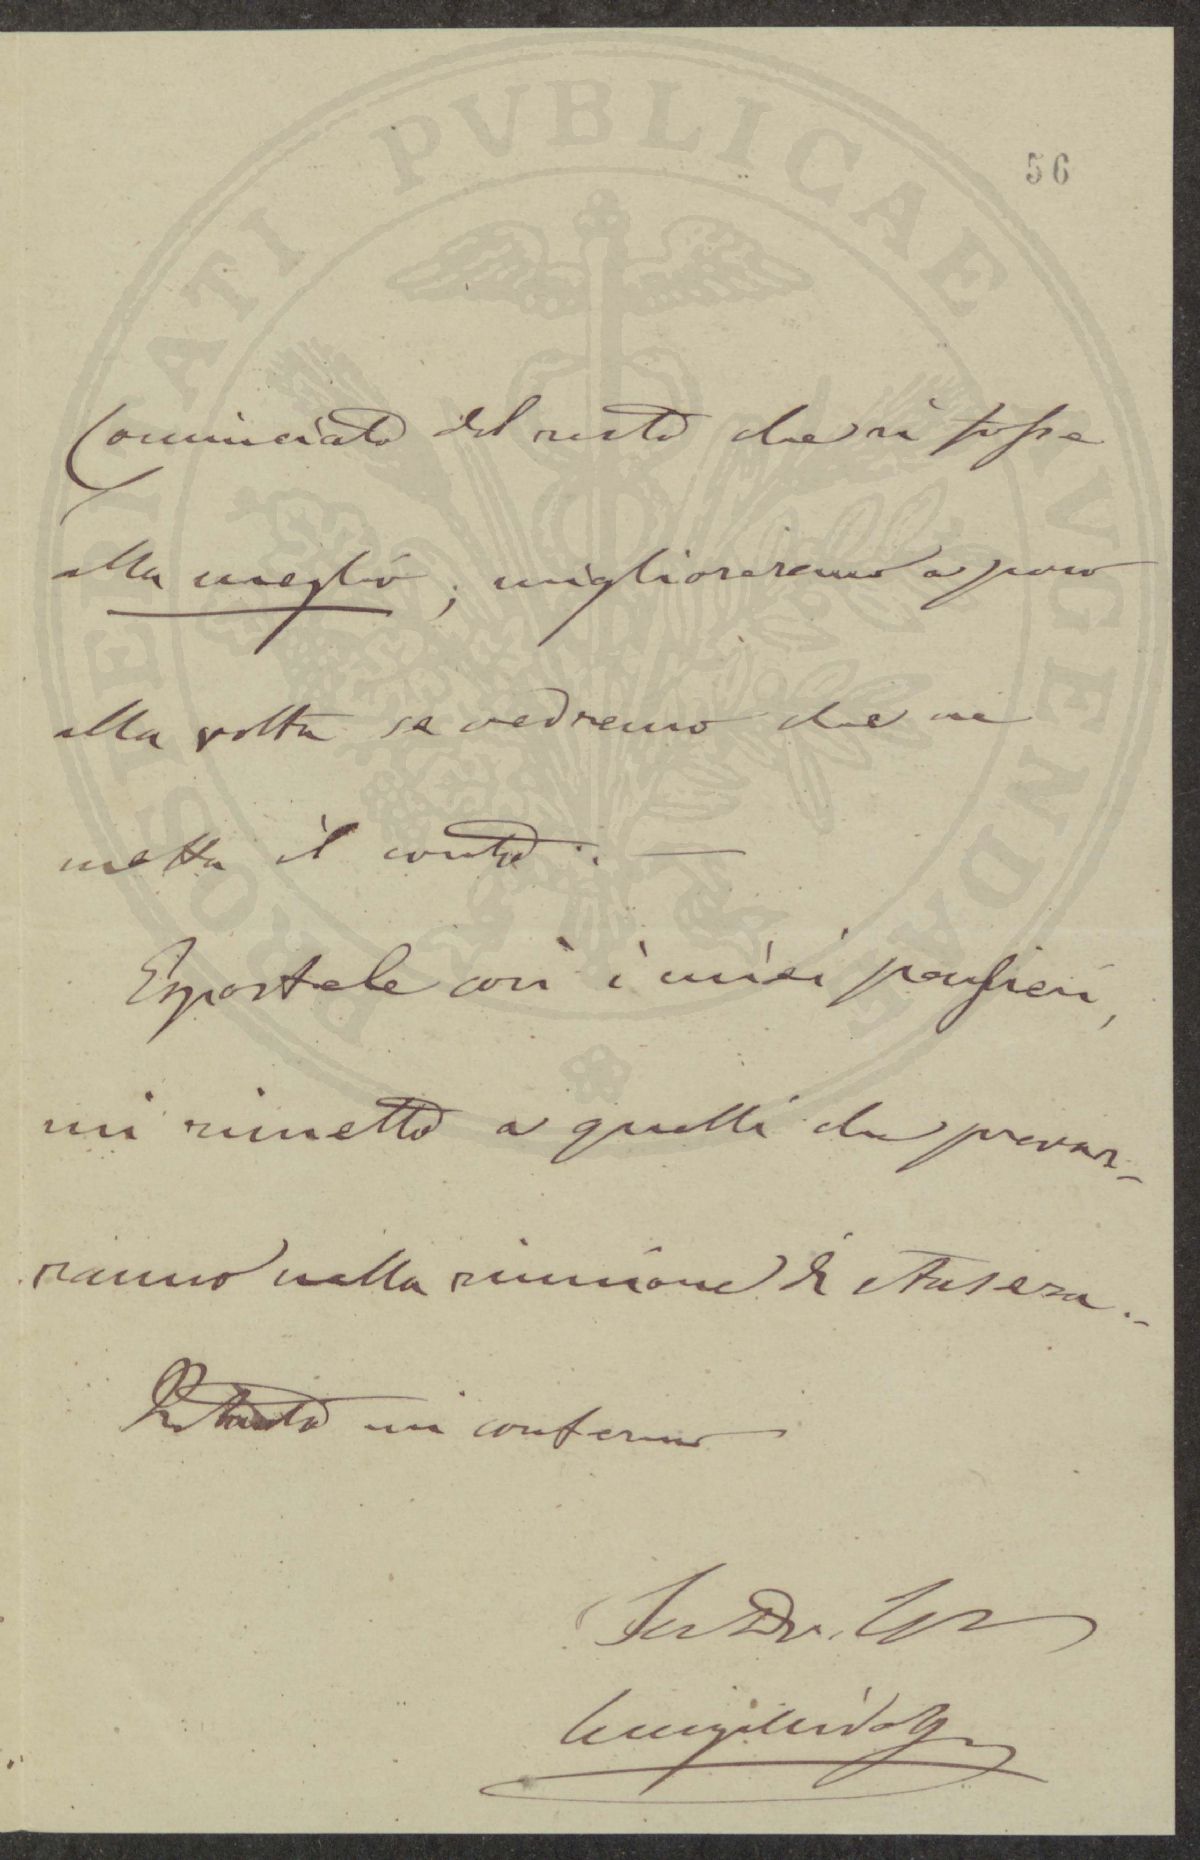 PROSPERITATI PVBLICAE AVGENDAE
56
Cominciato del resto che si fosse
alla meglio, miglioreremo a poco
alla volta se vedremo che ne
metta il conto. —
Espostele così i miei pensieri,
mi rimetto a quelli che prevar-
ranno nella riunione di stasera.
mi confermo
Luigi